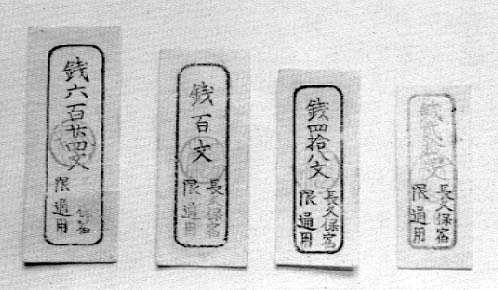 銭六百廿四文
保宿
限通用
銭百文
長久保宿
限通用
銭四拾八文
長久保宿
限通用
銭文
長久保宿
限通用